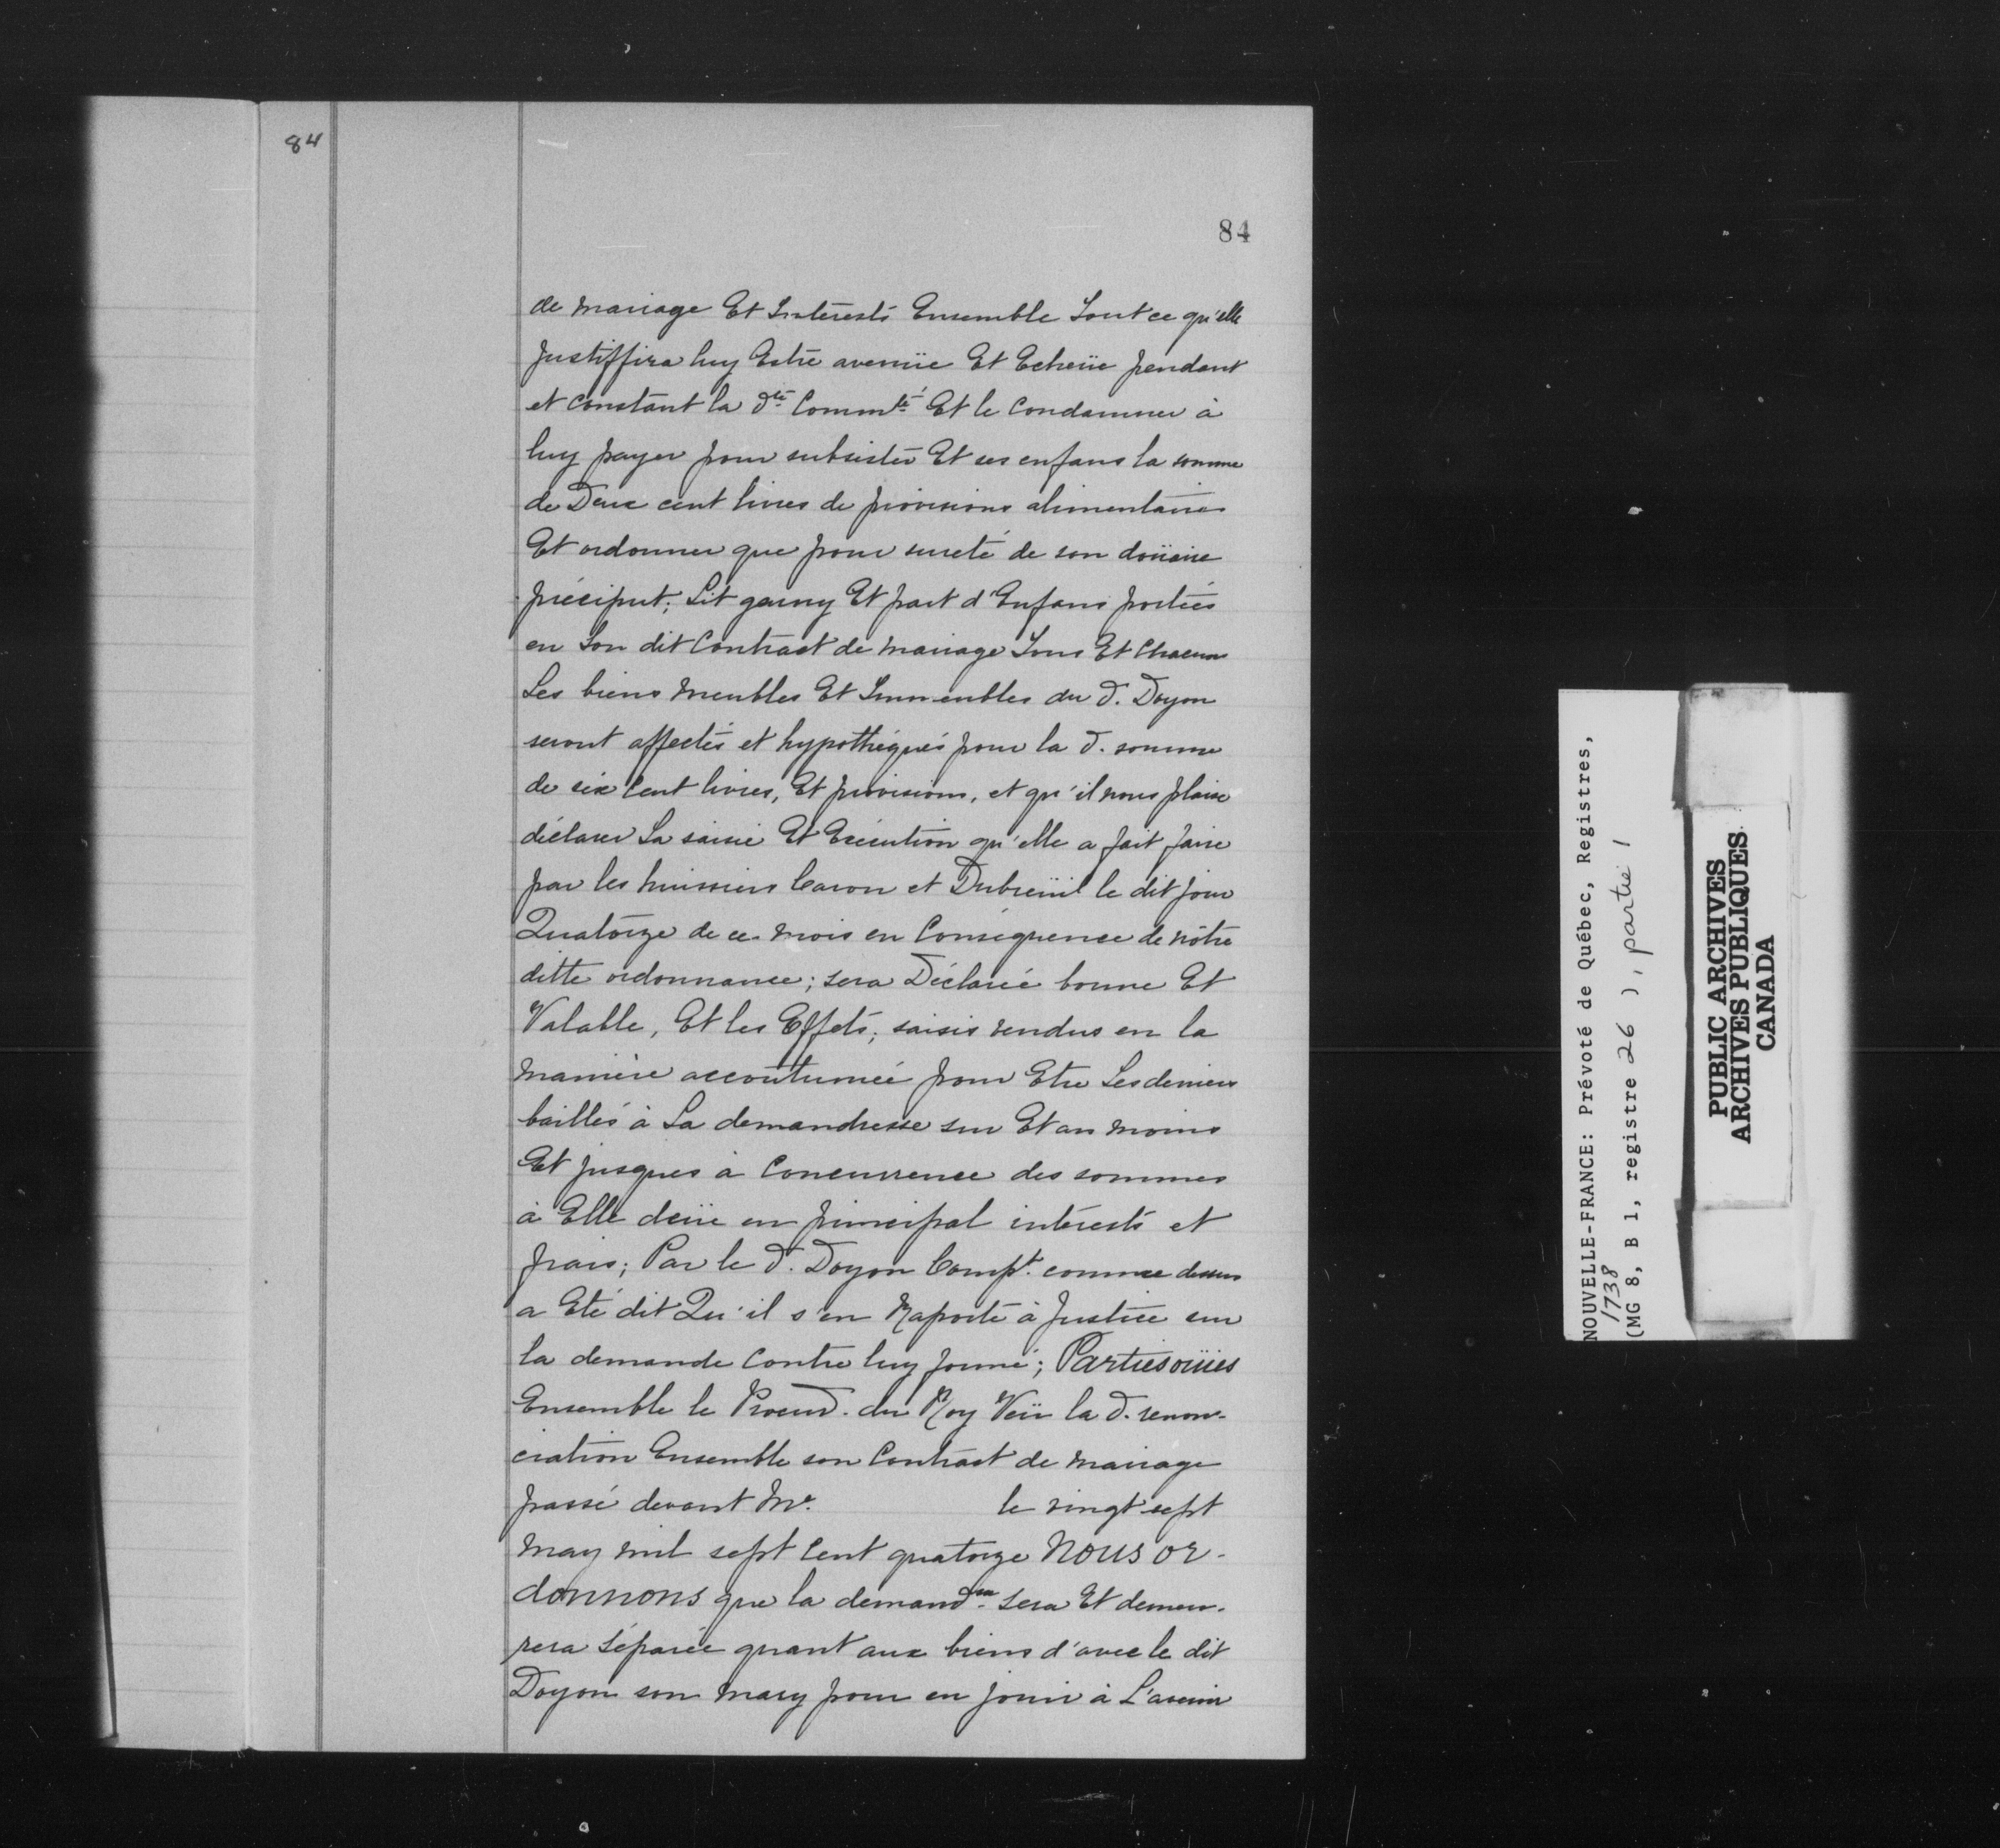 84
84
de mariage Et Interests Ensemble Tout ce qu'elle
Justiffira luy Estre avenüe Et Echeüe pendant
et constant la dte Commté Et le Condamner à
luy payer pour subsister Et ses enfans la somme
de Deux cent livres de provisions alimentaires
Et ordonner que pour sureté de son doüaire
préciput; Lit garny Et part d'Enfans portées
en Son dit Contract de mariage Tous Et Chacun
Les biens meubles Et Immeubles du d. Doyon
seront affectés et hypothéqués pour la d. somme
de six Cent livres, Et provisions, et qu'il nous plaise
déclarer La saisie Et Exécution qu'elle a fait faire
par les huissiers Caron et Dubreüil le dit jour
Quatorze de ce mois en Conséquence de nôtre
ditte ordonnance; sera Déclarée bonne Et
Valable, Et les Effets; saisis vendus en la
manière accoutumée pour Etre Les deniers
baillés à La demandresse sur Et au moins
Et jusques à Concurrence des sommes
à Elle deüe en principal intérests et
frais; Par le d. Doyon Compt. comme dessus
a Eté dit Qu'il s'en Raporte à Justice sur
la demande Contre luy formé; Parties oüies
Ensemble le Procur. du Roy Veü la d. renon-
ciation Ensemble son Contract de mariage
passé devant Me. le vingt sept
may mil sept Cent quatorze Nous or-
donnons que la demandsse sera Et demeu-
rera séparée quant aux biens d'avec le dit
Doyon son mary pour en jouir à L'avenir
NOUVELLE-FRANCE: Prévoté de Québec, Registres,
1738
(MG 8, B 1, registre 26 ), partie 1
PUBLIC ARCHIVES
ARCHIVES PUBLIQUES
CANADA